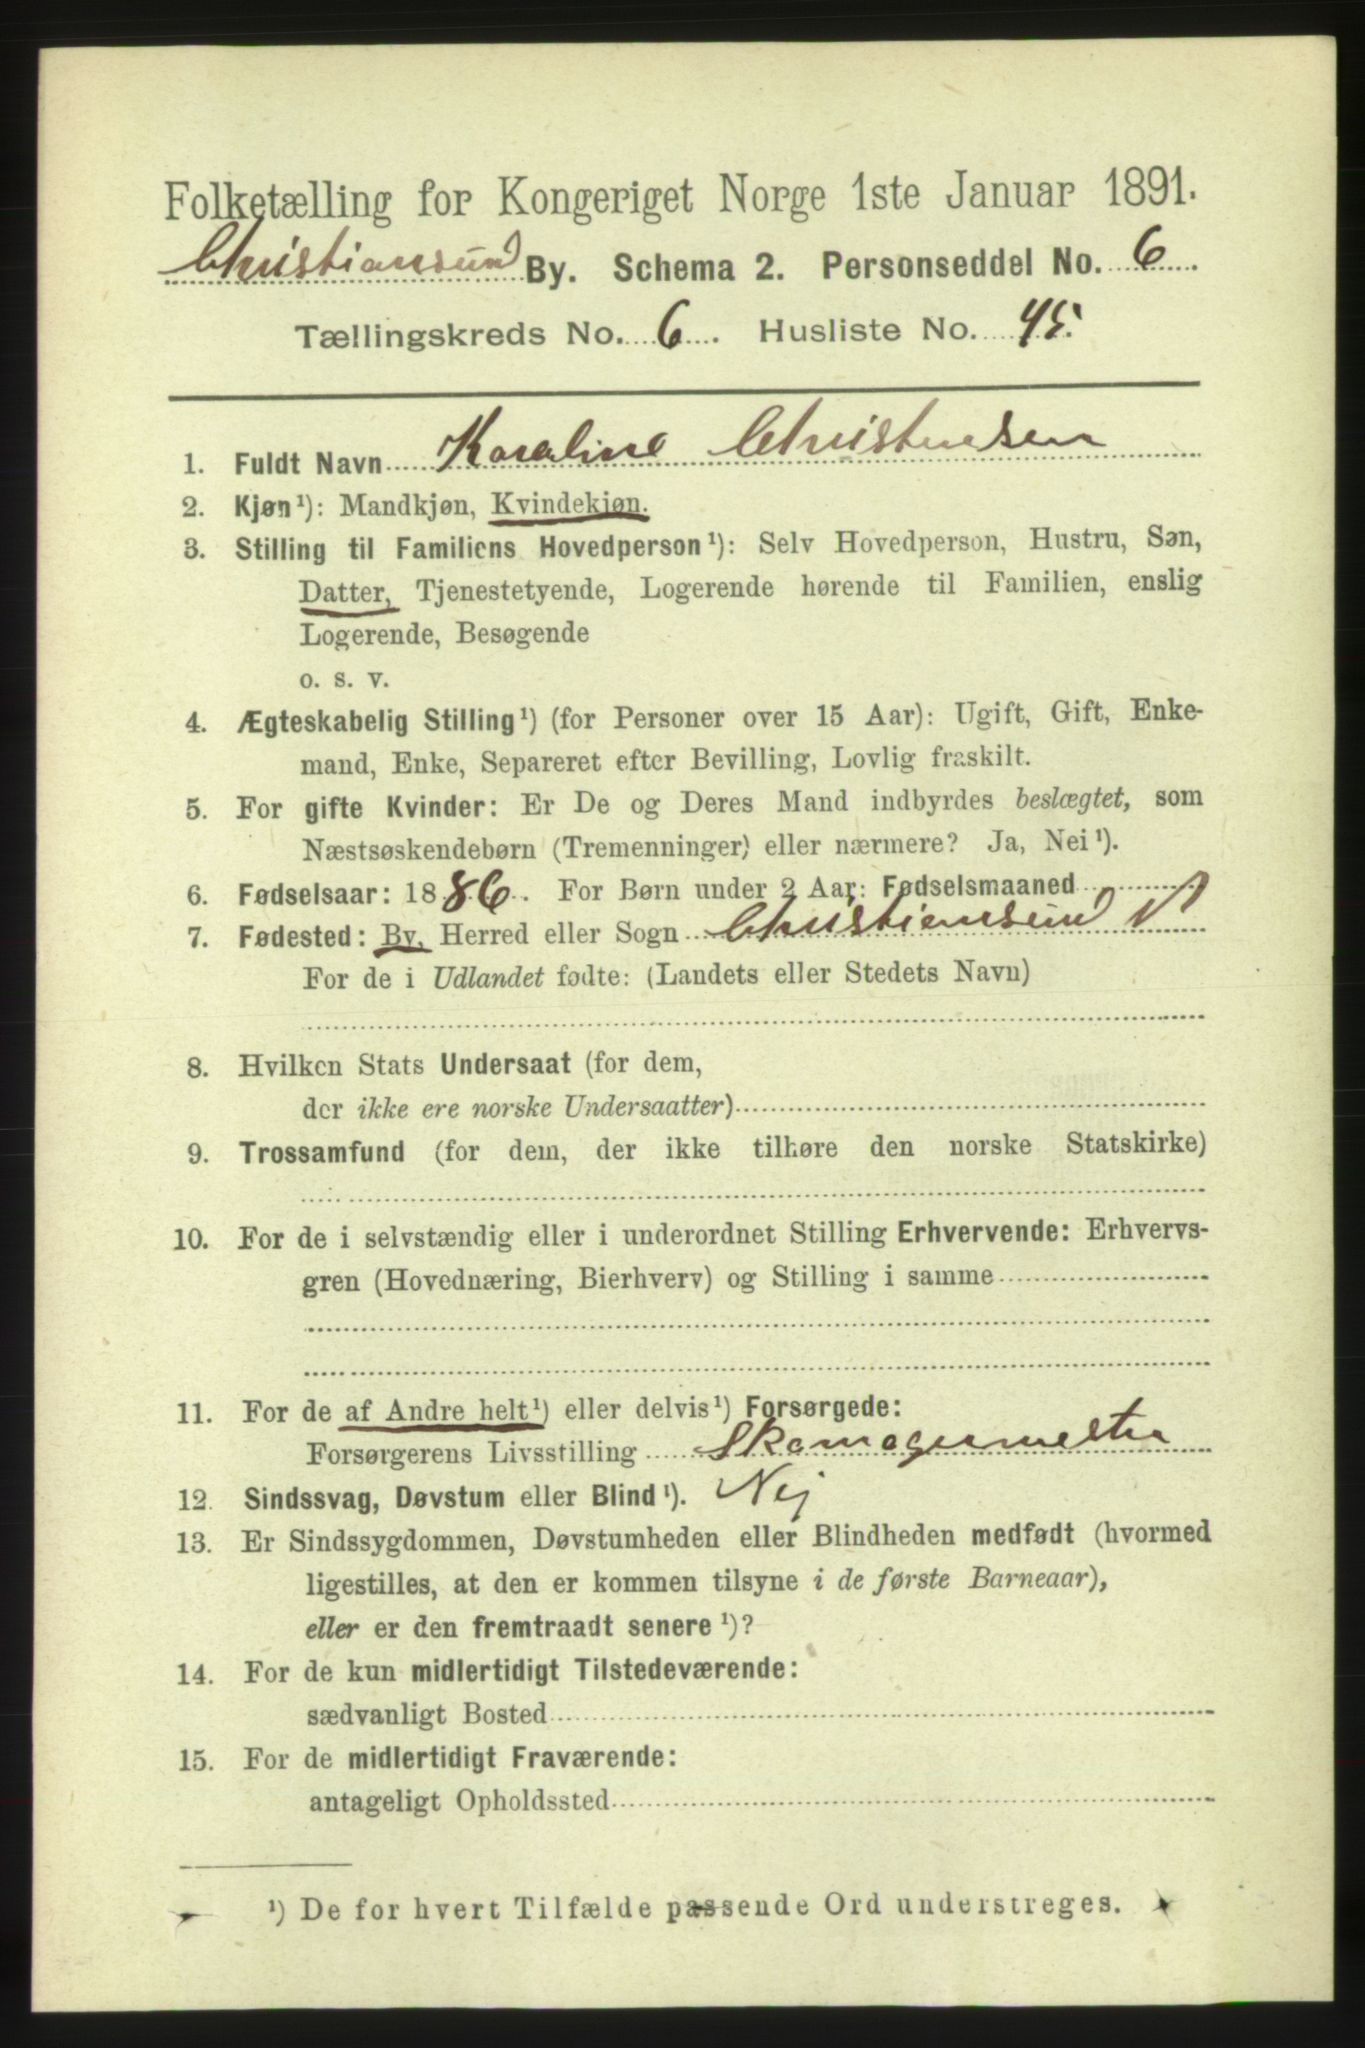 Folketælling for Kongeriget Norge 1ste Januar 1891.
Christiansund By. Schema 2. Personseddel No. 6
Tællingskreds No. 6. Husliste No. 45.
1. Fuldt Navn Karoline Christensen
2. Kjøn¹): Mandkjøn, Kvindekjøn.
3. Stilling til Familiens Hovedperson¹): Selv Hovedperson, Hustru, Søn,
Datter, Tjenestetyende, Logerende hørende til Familien, enslig
Logerende, Besøgende
o. s. v.
4. Ægteskabelig Stilling¹) (for Personer over 15 Aar): Ugift, Gift, Enke-
mand, Enke, Separeret efter Bevilling, Lovlig fraskilt.
5. For gifte Kvinder: Er De og Deres Mand indbyrdes beslægtet, som
Næstsøskendebørn (Tremenninger) eller nærmere? Ja, Nei¹).
6. Fødselsaar: 1886. For Børn under 2 Aar: Fødselsmaaned
7. Fødested: By, Herred eller Sogn Christiansund
For de i Udlandet fødte: (Landets eller Stedets Navn)
8. Hvilken Stats Undersaat (for dem,
der ikke ere norske Undersaatter)
9. Trossamfund (for dem, der ikke tilhøre den norske Statskirke)
10. For de i selvstændig eller i underordnet Stilling Erhvervende: Erhvervs-
gren (Hovednæring, Bierhverv) og Stilling i samme
11. For de af Andre helt¹) eller delvis¹) Forsørgede:
Forsørgerens Livsstilling Skomagermester
12. Sindssvag, Døvstum eller Blind¹). Nej
13. Er Sindssygdommen, Døvstumheden eller Blindheden medfødt (hvormed
ligestilles, at den er kommen tilsyne i de første Barneaar),
eller er den fremtraadt senere¹)?
14. For de kun midlertidigt Tilstedeværende:
sædvanligt Bosted
15. For de midlertidigt Fraværende:
antageligt Opholdssted
¹) De for hvert Tilfælde passende Ord understreges.